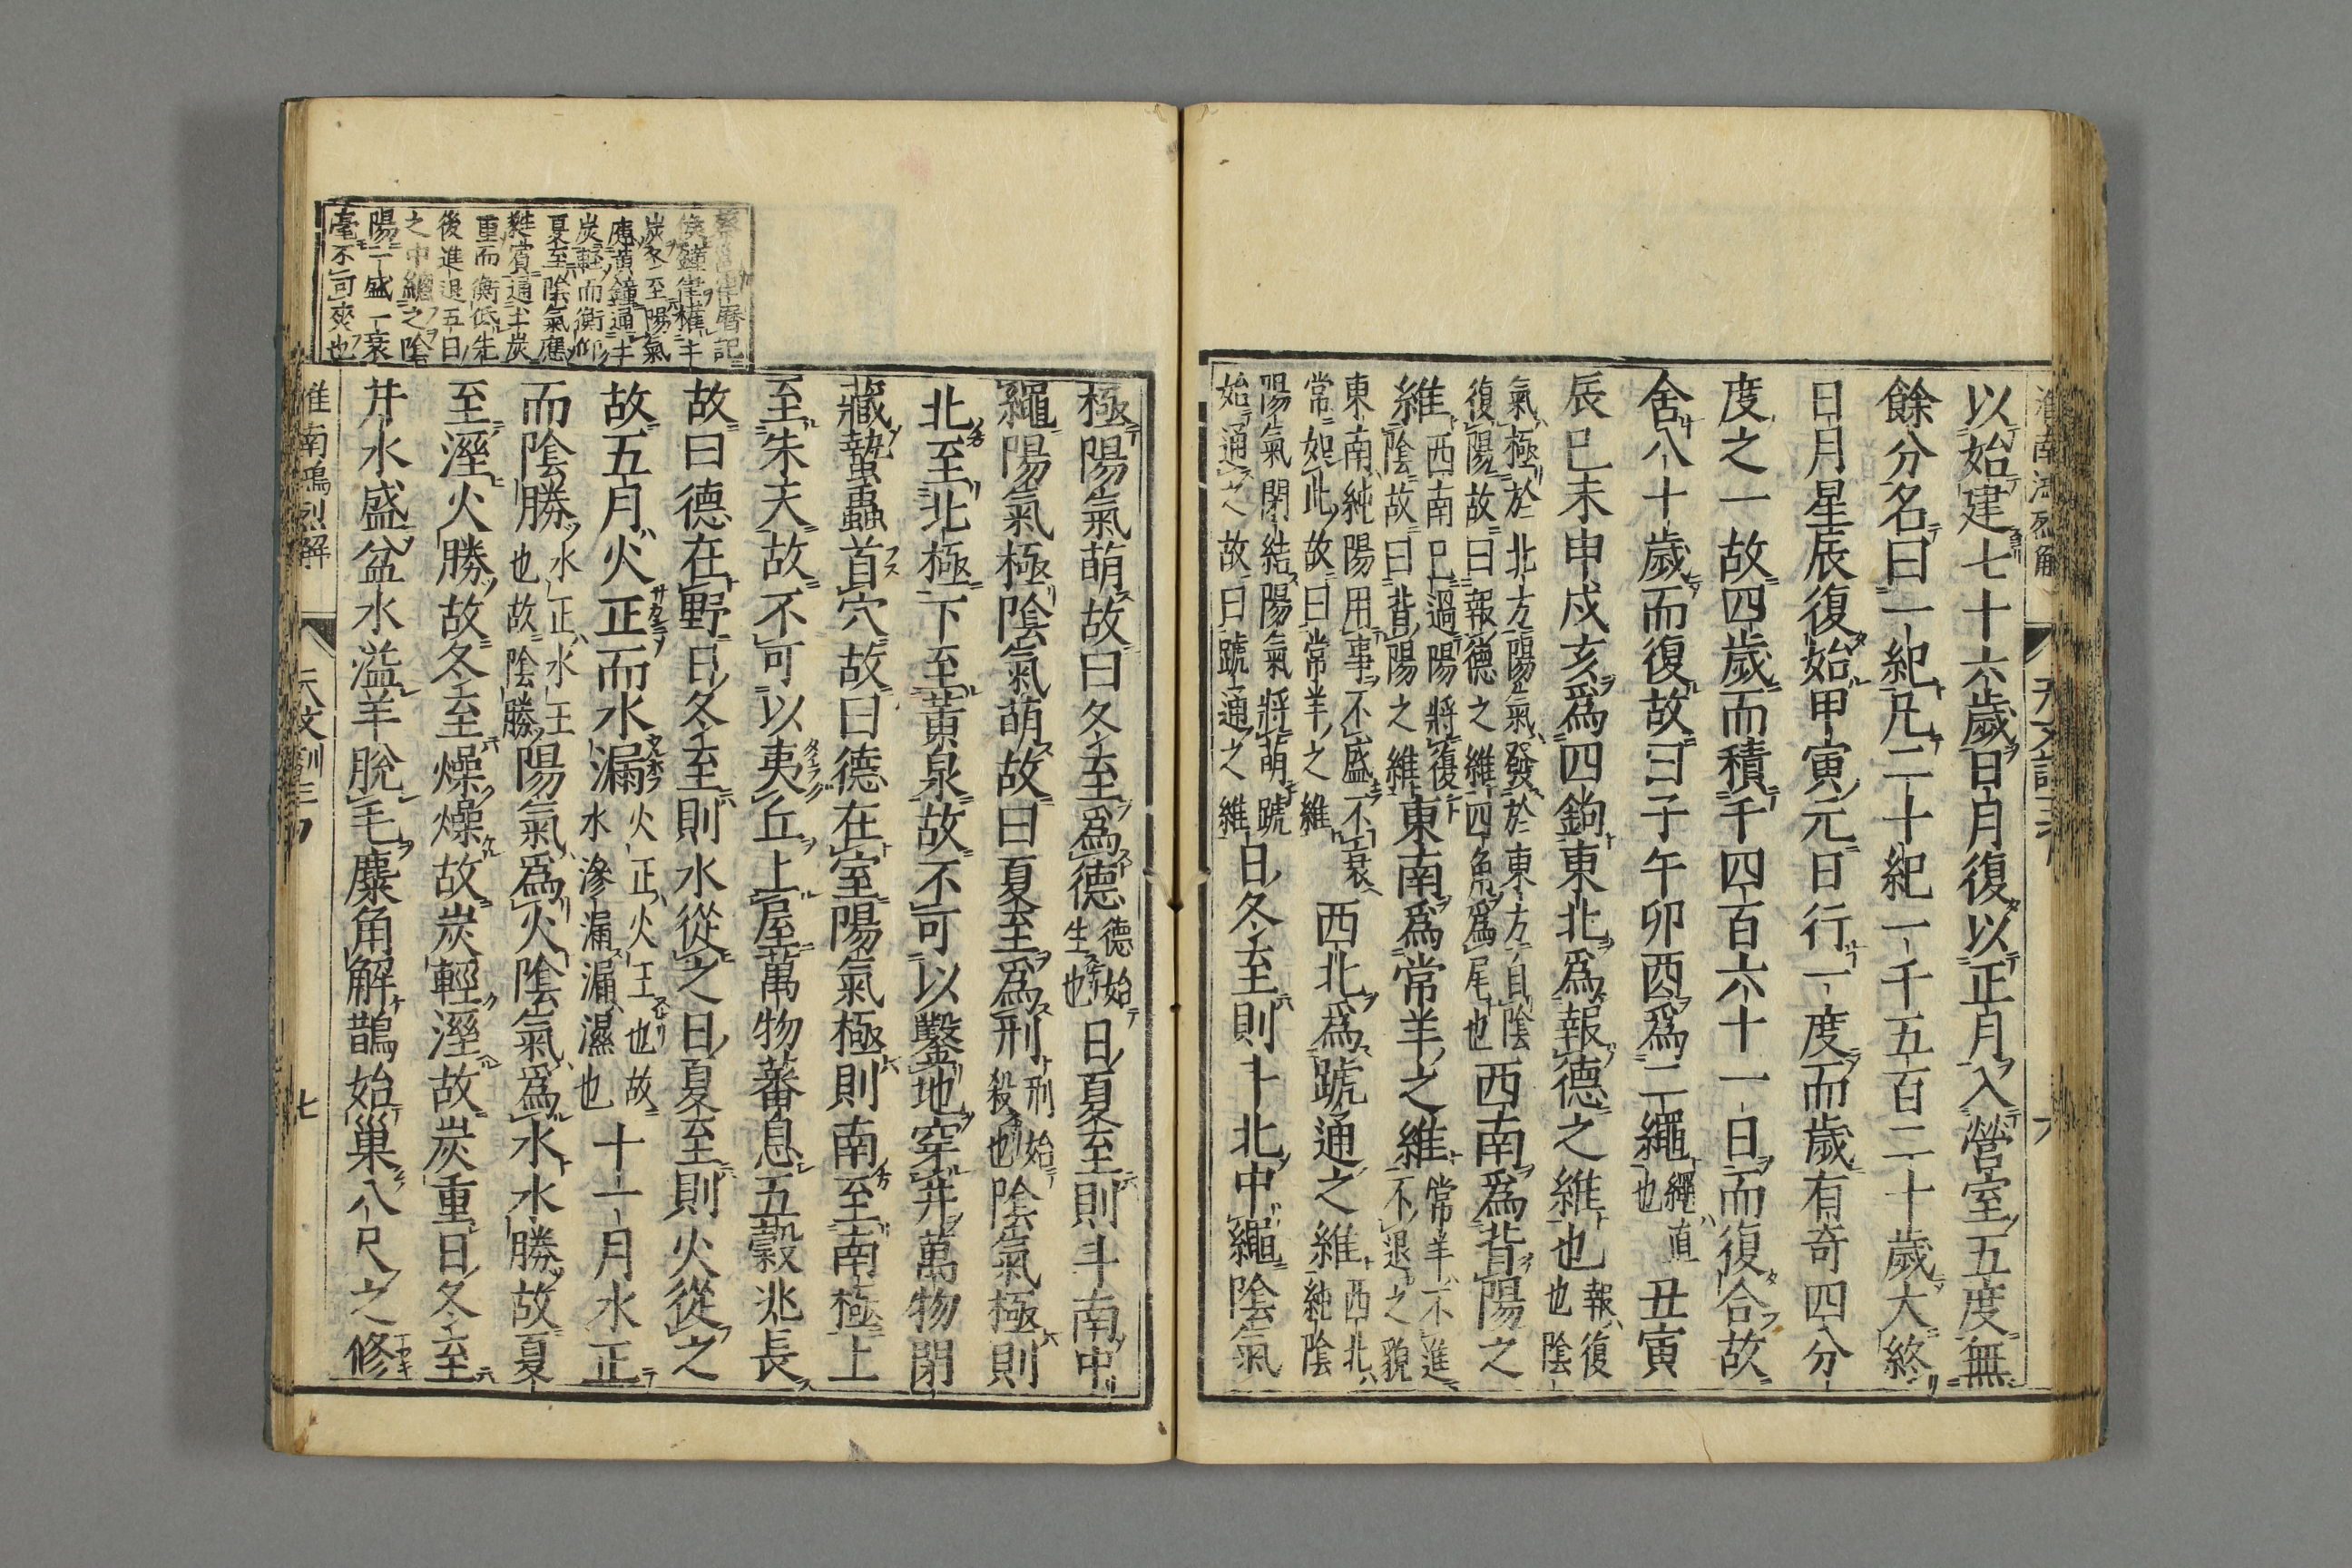 淮南鴻烈解
天文訓三
六
以始建七十六歲日月復以正月入營室五度無
餘分名曰一紀凡二十紀一千五百二十歲大終
日月星辰復始甲寅元日行一度而歲有奇四分
度之一故四歲而積千四百六十一日而復合故
舍八十歲而復故曰子午卯酉爲二繩繩直也丑寅
辰巳未申戌亥爲四鉤東北爲報德之維也報復也陰
氣極於北方陽氣發於東方自陰復陽故曰報德之維四角爲尾也西南爲背陽之
維西南已過陽將復陰故曰背陽之維東南爲常羊之維常羊不進不退之貌
東南純陽用事不盛不衰常如此故曰常羊之維西北爲蹏通之維西北純陰
陽氣閉結陽氣將萌蹏始通之故曰蹏通之維日冬至則斗北中繩陰氣
極陽氣萌故曰冬至爲德德始生也日夏至則斗南中
繩陽氣極陰氣萌故曰夏至爲刑刑始殺也陰氣極則
北至北極下至黃泉故不可以鑿地穿井萬物閉
藏蟄蟲首穴故曰德在室陽氣極則南至南極上
至朱天故不可以夷丘上屋萬物蕃息五穀兆長
故曰德在野日冬至則水從之日夏至則火從之
故五月火正而水漏火正火王也故水滲漏漏濕也十一月水正
而陰勝水正水王也故陰勝陽氣爲火陰氣爲水水勝故夏
至溼火勝故冬至燥燥故炭輕溼故炭重日冬至
井水盛盆水溢羊脫毛麋角解鵲始巢八尺之修
蔡邕律曆記
候鐘律權土
炭冬至陽氣
應黃鐘通土
炭輕而衡仰
夏至陰氣應
蕤賓通土炭
重而衡低先
後進退五日
之中總之陰
陽一盛一衰
毫不可爽也
淮南鴻烈解
天文訓三
七